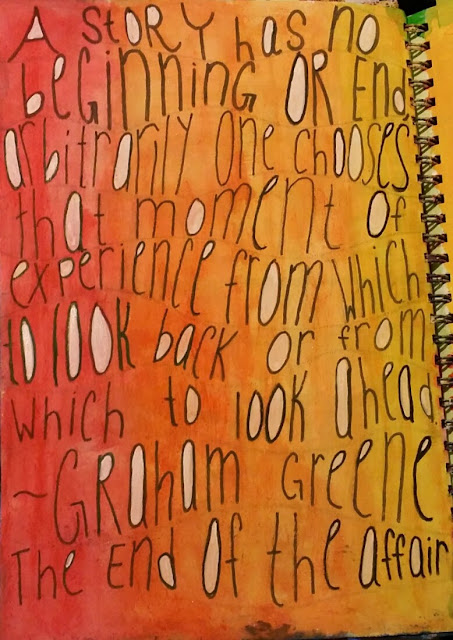 A STORY has no
beGinning OR End,
arbitrarily one chooses
that moment of
experience from which
to look back or from
which to look ahead
~GRaham Greene
The End of the affair